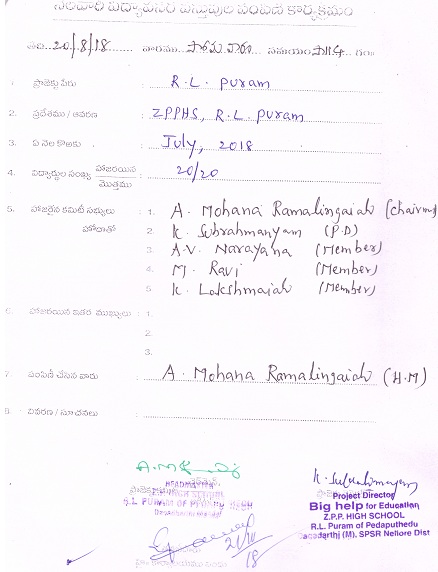 సంచారి విద్యావసర వస్తువుల పంపిణీ కార్యక్రమం
తేది 20/8/18 వారము సోమవారం సమయం సా॥4 గం
1. ప్రాజెక్టు పేరు : R.L. Puram
2. ప్రదేశము / ఆవరణ : ZPPHS, R.L. Puram
3. ఏ నెల కొఱకు : July, 2018
4. విద్యార్థుల సంఖ్య హాజరయిన / మొత్తము : 20/20
5. హాజరైన కమిటీ సభ్యులు : 1. A. Mohana Ramalingaiah (Chairm)
హోదాతో 2. K. Subrahmanyam (P.D)
3. A.V. Narayana (Member)
4. M. Ravi (Member)
5. K. Lakshmaiah (Member)
6. హాజరయిన ఇతర ముఖ్యులు : 1.
2.
3.
7. పంపిణీ చేసిన వారు : A. Mohana Ramalingaiah (H.M)
8. వివరణ / సూచనలు :
HEADMASTER
HIGH SCHOOL
R.L PURAM OF
21/8/18
K. Subrahmanyam
Project Director
Big help for Education
Z.P.P. HIGH SCHOOL
R.L. Puram of Pedaputhedu
Dagadarthi (M). SPSR Nellore Dist